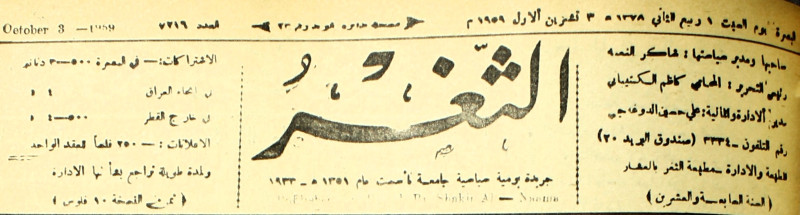 البصرة يوم السبت ١ ربيع الثاني ١٣٧٨ هـ ٣ تشرين الاول ١٩٥٩ م
العدد ٧٢١٦
October 3 —1959
صاحبها ومدير سياستها : شاكر النعمة
رئيس التحرير : المحامي كاظم السكتبياني
مدير الادارة والمالية : علي حسين
رقم التلفون — ٣٣٣٤ (صندوق البريد ٢٠)
الطبعة والادارة — مطبعة الثغر بالعشار
( السنة السابعة والعشرين )
الثغر
جريدة يومية سياسية جامعة تأسست عام ١٣٥١ هـ - ١٩٣٣
الاشتراكات :— في البصرة ٥٠٠—٣ دنانير
في انحاء العراق ٤ د
في خارج القطر ٥٠٠—٤ د
الاعلانات :— ٢٥٠ فلساً للعقد الواحد
ولمدة طويلة تراجع بشأنها الادارة
( ثمن النسخة ١٠ فلوس )